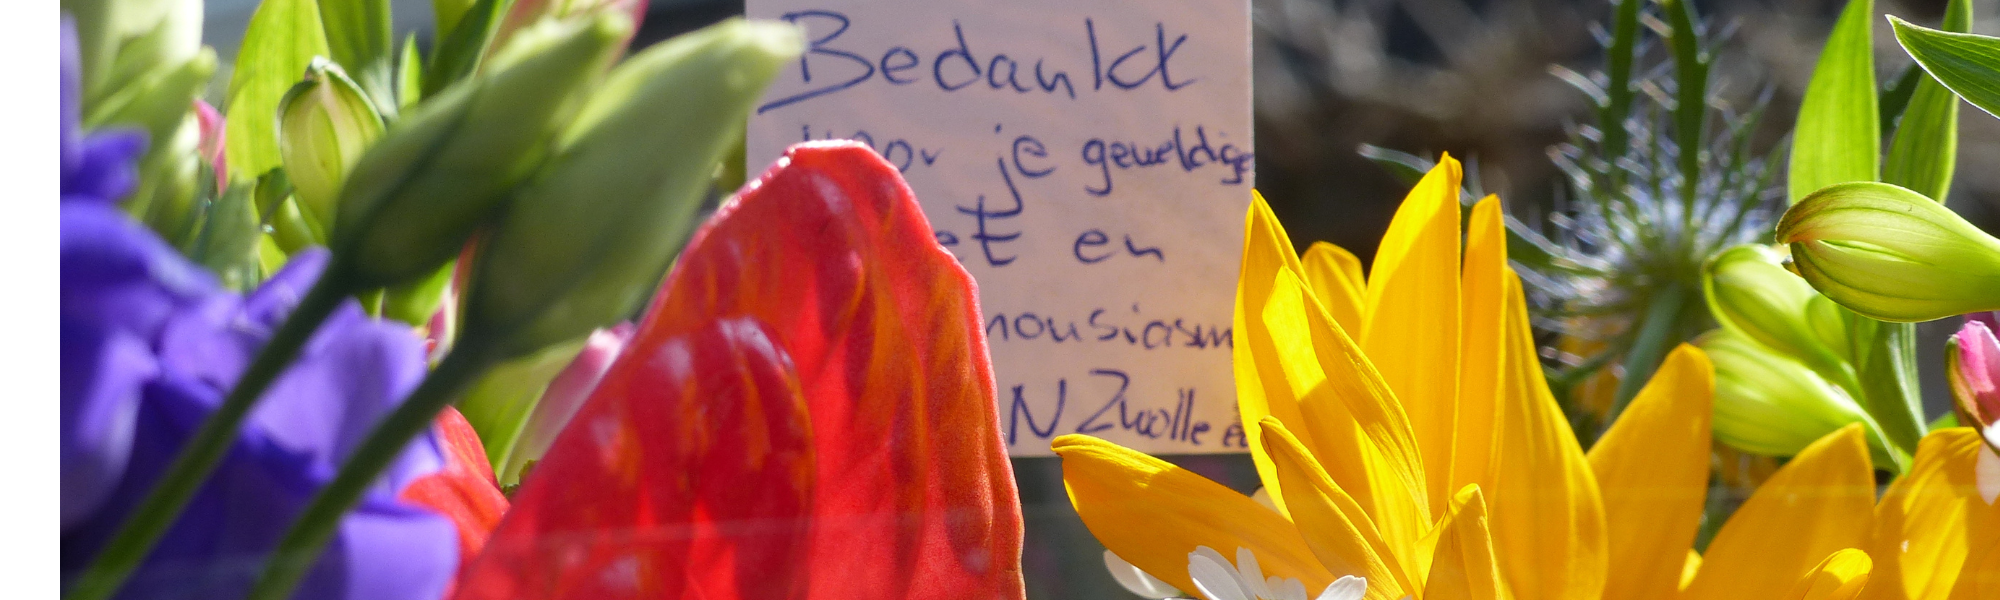 Bedankt
voor je geweldige
et en
nousiasm
N Zwolle